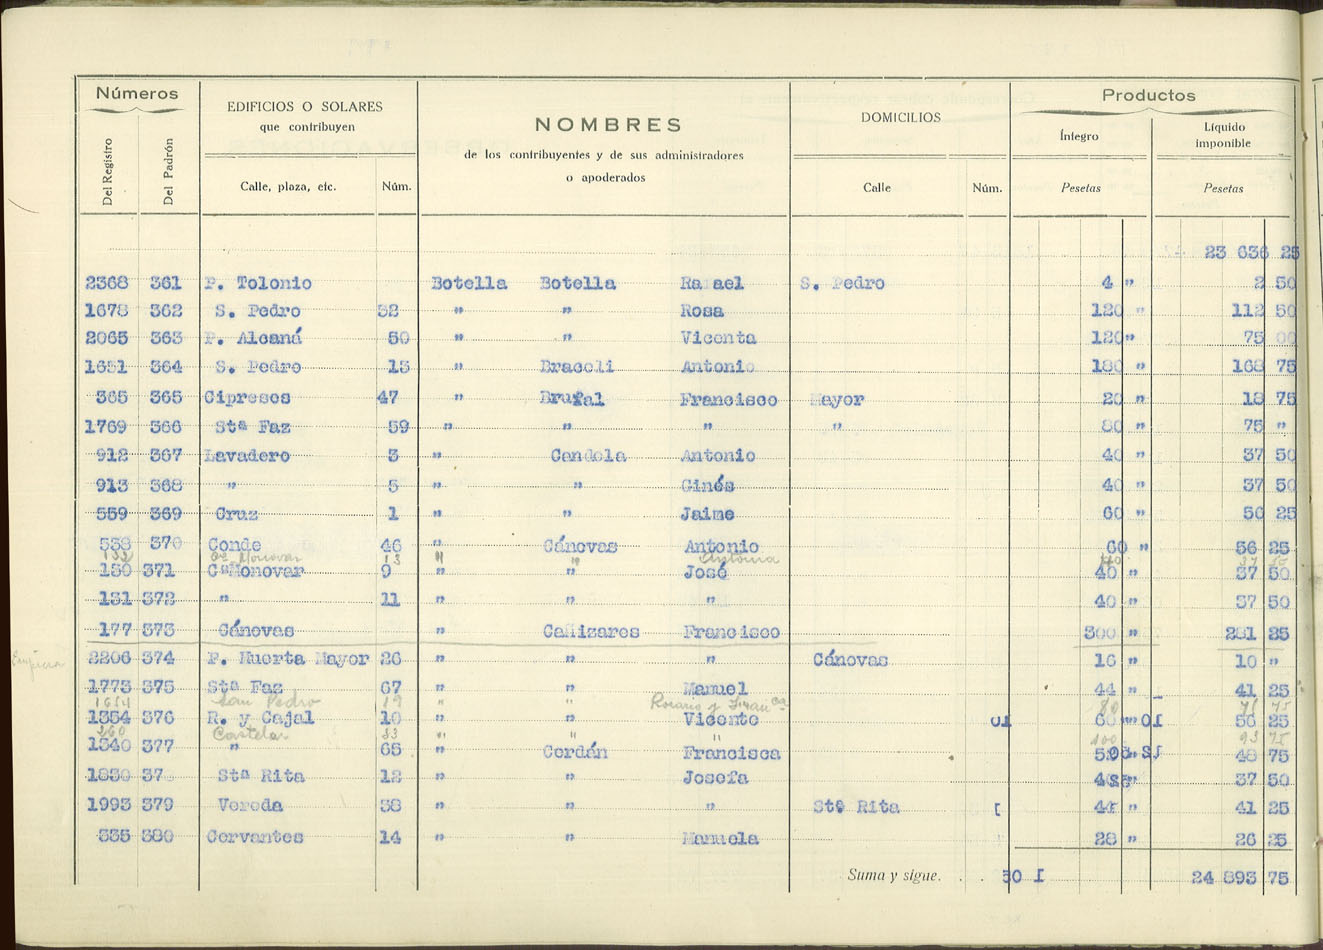 Números
EDIFICIOS O SOLARES
que contribuyen
NOMBRES
de los contribuyentes y de sus administradores
o apoderados
DOMICILIOS
Productos
Del Registro Del Padrón Calle, plaza, etc. Núm. Calle Núm. Íntegro Líquido imponible
Pesetas Pesetas
23 636 25
2368 361 P. Tolonio Botella Botella Ra ael S. Pedro 4 " 2 50
1678 362 S. Pedro 32 " " Rosa 120 " 112 50
2065 363 P. Alcaná 50 " " Vicenta 120 " 75 00
1651 364 S. Pedro 13 " Braceli Antonio 180 " 168 75
365 365 Cipreses 47 " Brufal Francisco Mayor 20 " 18 75
1769 366 Stª Faz 59 " " " " 80 " 75 "
912 367 Lavadero 3 " Candela Antonio 40 " 37 50
913 368 " 5 " " Ginés 40 " 37 50
559 369 Cruz 1 " " Jaime 60 " 56 25
538 370 Conde 46 " Cánovas Antonio 60 " 56 25
132 Cª Monovar 13 " " Antonia 40 37 50
130 371 CªMonovar 9 " " José 40 " 37 50
131 372 " 11 " " " 40 " 37 50
177 373 Cánovas " Cañizares Francisco 300 " 281 25
2206 374 P. Huerta Mayor 26 " " " Cánovas 16 " 10 "
1773 375 Stª Faz 67 " " Manuel 44 " 41 25
1654 San Pedro 19 " " Rosario y Franca 80 75
1354 376 R. y Cajal 10 " " Vicente 60 " 56 25
360 Castelar 83 " " " 100 93 75
1340 377 " 65 " Cerdán Francisca 48 75
1830 37 Stª Rita 12 " " Josefa 40 37 50
1993 379 Vereda 38 " " " Stª Rita 44 " 41 25
335 380 Cervantes 14 " " Manuela 28 " 26 25
Suma y sigue. . . 24 893 75